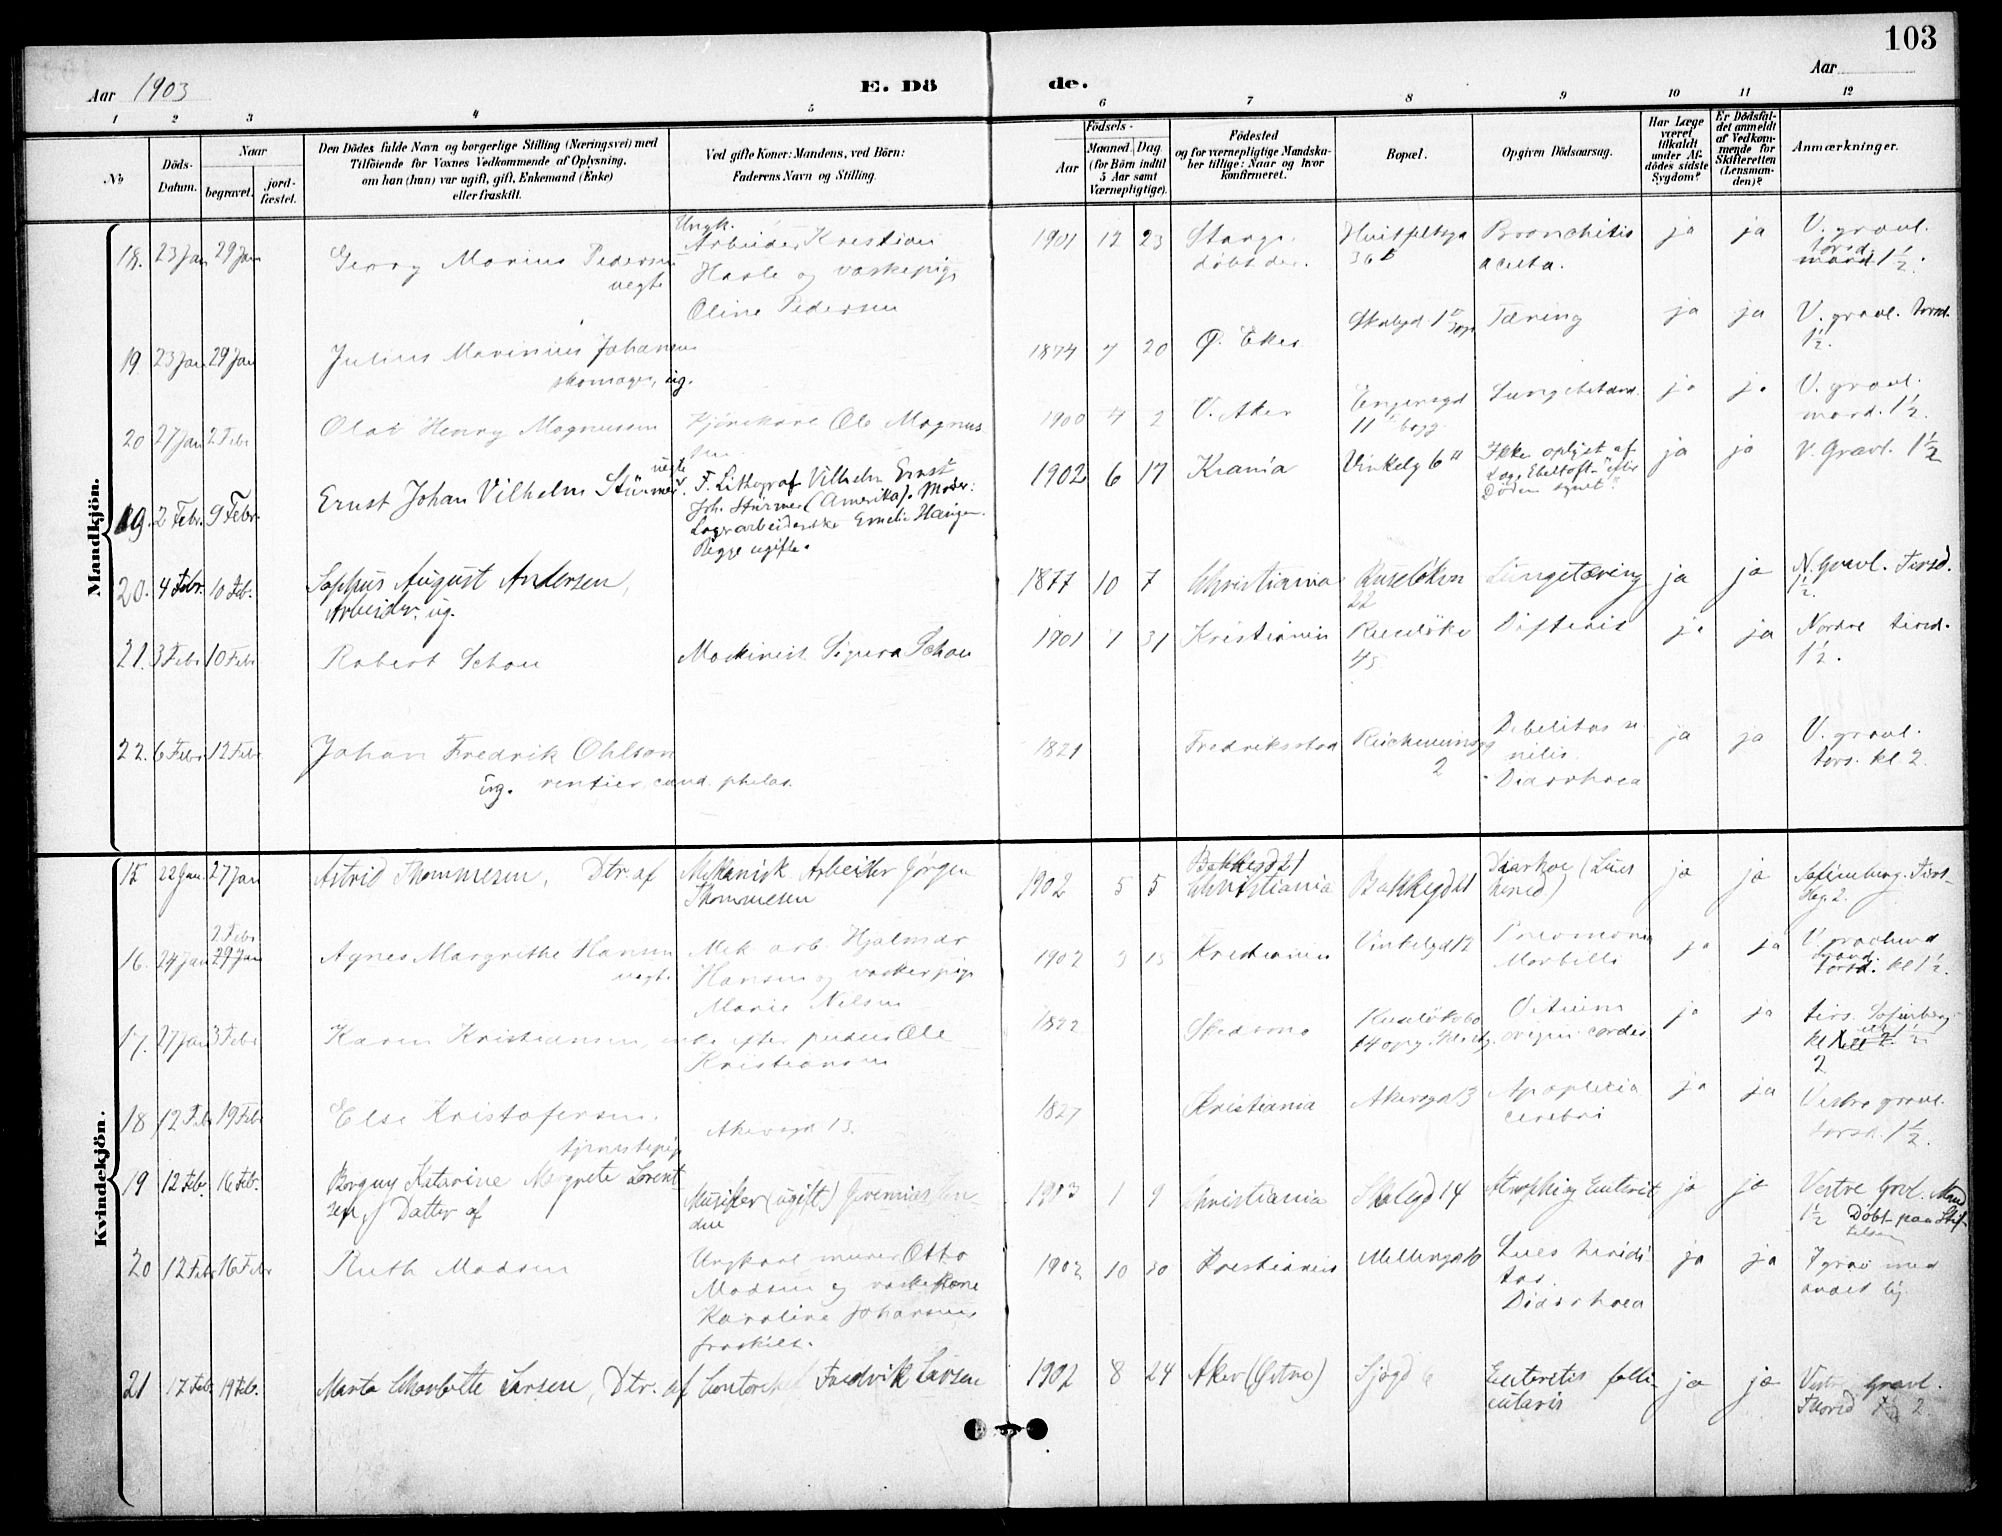 103
Aar 1903
E. Dö
de.
Aar
1 2 3 4 5 6 7 8 9 10 11 12
No
Döds-Datum.
Naar
begravet.
jord-fæstet.
Den Dödes fulde Navn og borgerlige Stilling (Næringsvei) med
Tilföiende for Voxnes Vedkommende af Oplysning,
om han (hun) var ugift, gift, Enkemand (Enke)
eller fraskilt.
Ved gifte Koner: Mandens, ved Börn:
Faderens Navn og Stilling.
Födsels-
Aar
Maaned, Dag
(for Börn indtil
5 Aar samt
Værnepligtige).
Födested
og for værnepligtige Mandska-
ber tillige: Naar og hvor
konfirmeret.
Bopæl.
Opgiven Dödsaarsag.
Har Læge
været
tilkaldt
under Af-
dödes sidste
Sygdom?
Er Dödsfal-
det anmeldt
af Vedkom-
mende for
Skifteretten
(Lensman-
den)?
Anmærkninger.
Mandkjön.
18. 23 Jan 29 Jan Georg Marius Pedersen uegte
Ungk. Arbeider Kristian
Hasle og vaskepige
Oline Pedersen
1901 12 23 Stange. døbt der. Huitfeltsga 36 b Bronchitis acuta. ja ja V. gravl. 1½.
19. 23 Jan 29 Jan Julius Marinius Johansen skomager, ug.
1874 7 20 Ø. Eker 1 Tæring ja ja V. gravl. torsd. 1½.
20 27 Jan 2 Febr Olaf Henry Magnusen Kjørekarl Ole Magnus
1900 4 2 V. Aker 11 Lungebetænd. ja ja V. gravl. mand. 1½.
19. 2 Febr. 9 Febr. uegte Ernst Johan Vilhelm Stürmer.
F. Lithograf Vilhelm Ernst
Joh. Stürmer (Amerika). Moder:
Lagerarbeiderske Emelie Haugen.
Begge ugifte.
1902 6 17 Krania Vinkelg 6 II Ikke oplyst af Læge Ebeltoft "efter Døden synet" ja ja V. Gravl. 1½
20. 4 Febr. 10 Feb. Sophus August Andersen, Arbeider. ug.
1877 10 7 Christiania Ruseløkvn 22 Lungetæring ja ja N. Gravl. Tirsd. ½.
21. 3 Febr 10 Febr Robert Schou Maskinist Sigurd Schou
1901 7 31 Kristiania 45 Difteris ja ja Nordre tirsd. 1½.
22. 6 Febr 12 Febr Johan Fredrik Ohlson ug. rentier, cand. philos.
1821 Fredriksstad 2 Debilitas se nilis. Diarrhoea ja ja V. gravl. tors. kl 2.
Kvindekjön.
15 22 Jan. 27 Jan Astrid Thommesen, Dtr. af Mekanisk Arbeider Jørgen Thommesen
1902 5 5 Bakkegd 21 Christiania Bakkegd 21 Diarhoe (Lues hered) ja ja Sofienberg. Tirs- 2.
16. 24 Jan 2 Febr 29 Jan Agnes Margrethe Hansen uegte
Mek arb. Hjalmar
Hansen og vaskerpige
Marie Nilsen
1902 3 15 Kristiania Vinkelgd 12 Morbilli ja ja torsd. kl 1½.
17. 27 Jan 3 Febr Karen Kristiansen, enke efter Ole Kristiansen
1822 Skedsmo 14 Vitium organ. cordis ja ja tirs. Sofienberg kl 1½ 2
18 12 Feb 19 Febr Else Kristofersen. tjenestepige Akersgd 13.
1827 Kristiania Akersgd 13 Apoplexia cerebri ja ja Vestre gravl. torsd. 1½.
19 12 Febr. 16 Febr. Borguy Katarine Margrete Lorent zen, Datter af Musiker (ugift)
1903 1 9 Christiania 14 Atrophi og Enterit ja ja Vestre Grvl. Mand 1½ Døbt paa Stif- telsen
20 12 Febr 16 Febr Ruth Madsen
Ungkarl murer Otto
Madsen og vaskekone
Karoline Johansen
fraskilt.
1902 10 30 Kristiania Møllergd 10 Lues heredi tar. Diarrhoea ja ja I grav med andet lig.
21 17 Feb 19 Febr. Marta Charlotte Larsen, Dtr. af Contorchef Fredrik Larsen
1902 8 24 Aker (Østre) Sjøgd 6 Enteritis folli- cularis ja ja Vestre Gravl. Thorsd 2.